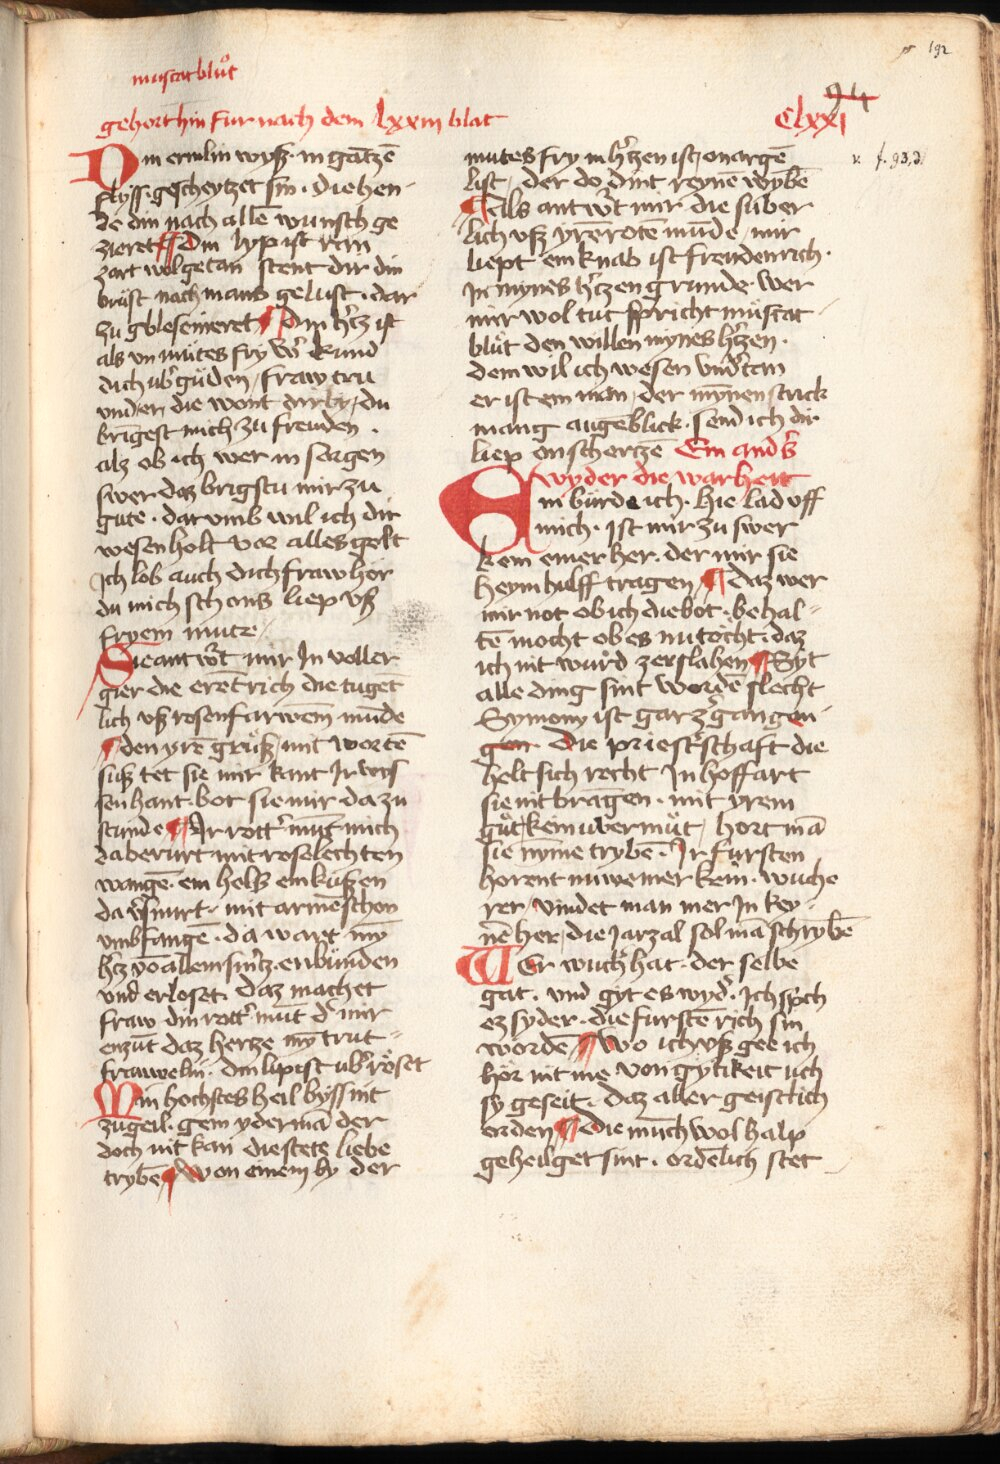 192
muscatbluͦt
gehort hin fur nach dem lxxiii blat
94
Clxxi
v. f. 93,2
Din ermlin wyſz · in gātzē
flyſſ · geſcheytzet ſin · die hen-
de din nach allē wunſch ge
zieret ¶ Din lyp iſt ran
zart wolgetan ſtent dir din
bruſt nach mans geluſt · dar
zu gbleſenieret ¶ Din h'tz iſt
als vn muͤtes fry
dich ub'guͤden / fraw tru
vnd er, die wont dir by / du
bringeſt mich zu freuden ·
alz ob ich wer in ſorgen
ſwer daz brigſtu mir zu
gute · dar vmb wil ich dir
weſen holt vor alles golt
Ich lob auch dich fraw hör
du mich ſchons liep vſz
fryem mute /
Sie antw't mir In voller
gier die erēt rich die tugēt
lich vſz roſenfarwēm mūde
¶ den yrē gruͦſz / mit wortē
ſuſz tet ſie mir kant Ir wyſ
ſen hant · bot ſie mir da zu
ſtunde ¶ Ir rott' mūt mich
da berurt mit roſelechten
wangē · ein helſz ein kuſzen
da v'ſnurt · mit armē ſchon
vmbfangē · da wart mȳ
h'tz vō allem ſm'tz · enbūnden
vnd erloſet · daz machet
fraw din rott' mūt d' mir
enzūt daz hertze mȳ trut-
frauwelin · din lip iſt ub'röſet
Min hochſtes heil byſſ nit
zu geil · gem ydermā der
doch nit kan die ſtete liebe
trybē ¶ won einem by der
mutes fry in h'tzen iſt / on argē
liſt / der do dint reynē wybē
¶ Als antw't mir die ſuber
lich vſz yre rotē mūde / mir
liept ein knab iſt freudenrich ·
In mynes h'tzen grunde · wer
mir wol tut ſpricht muͤſcat
bluͦt den willen mynes h'tzen ·
dem wil ich weſen vnd'tan
er iſt ein man / der mȳnen ſtrick
mang augēblick · ſend ich dir
liep on ſchertzē Ein and's
wyder die warheit
Ein bürd ich · hie lad vff
mich · iſt mir zu ſwer
kem einer her · der mir ſie
heym hulff tragen ¶ daz wer
mir not ob ich die bot · behal-
tē mocht ob es nu tocht · daz
ich nit wurd zerſlahen ¶ Syt
alle ding ſint wordē ſlecht
Symony iſt gar z'gangen
gen · Die prieſt'ſchaft die
helt ſich recht In hoffart
ſie nit bragen · mit yrem
guͦt / kem ubermuͦt / hort mā
ſie nȳme trybē · Ir furſten
horent nuwe mer kein · wuche
rer / vindet man mer In key-
nē her / die Jarzal ſol mā ſchrybē
Wer wuch' hat · der ſelbe
gat · und gyt es wyd' · Ich ſp'ch
ez ſyder · die furſtē rich ſin
wordē ¶ Wo ich vſz gee ich
hör nit me von gytikeit uch
ſy geſeit · daz aller geiſtlich
orden ¶ Die mūch wol halp
geheilget ſint · ordēlich ſtet